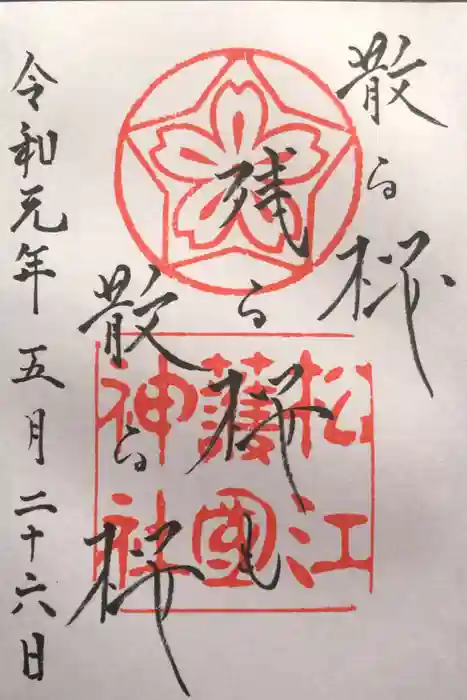 散る桜
残る桜も
散る桜
令和元年 五月 二十六日
松江
護國
神社